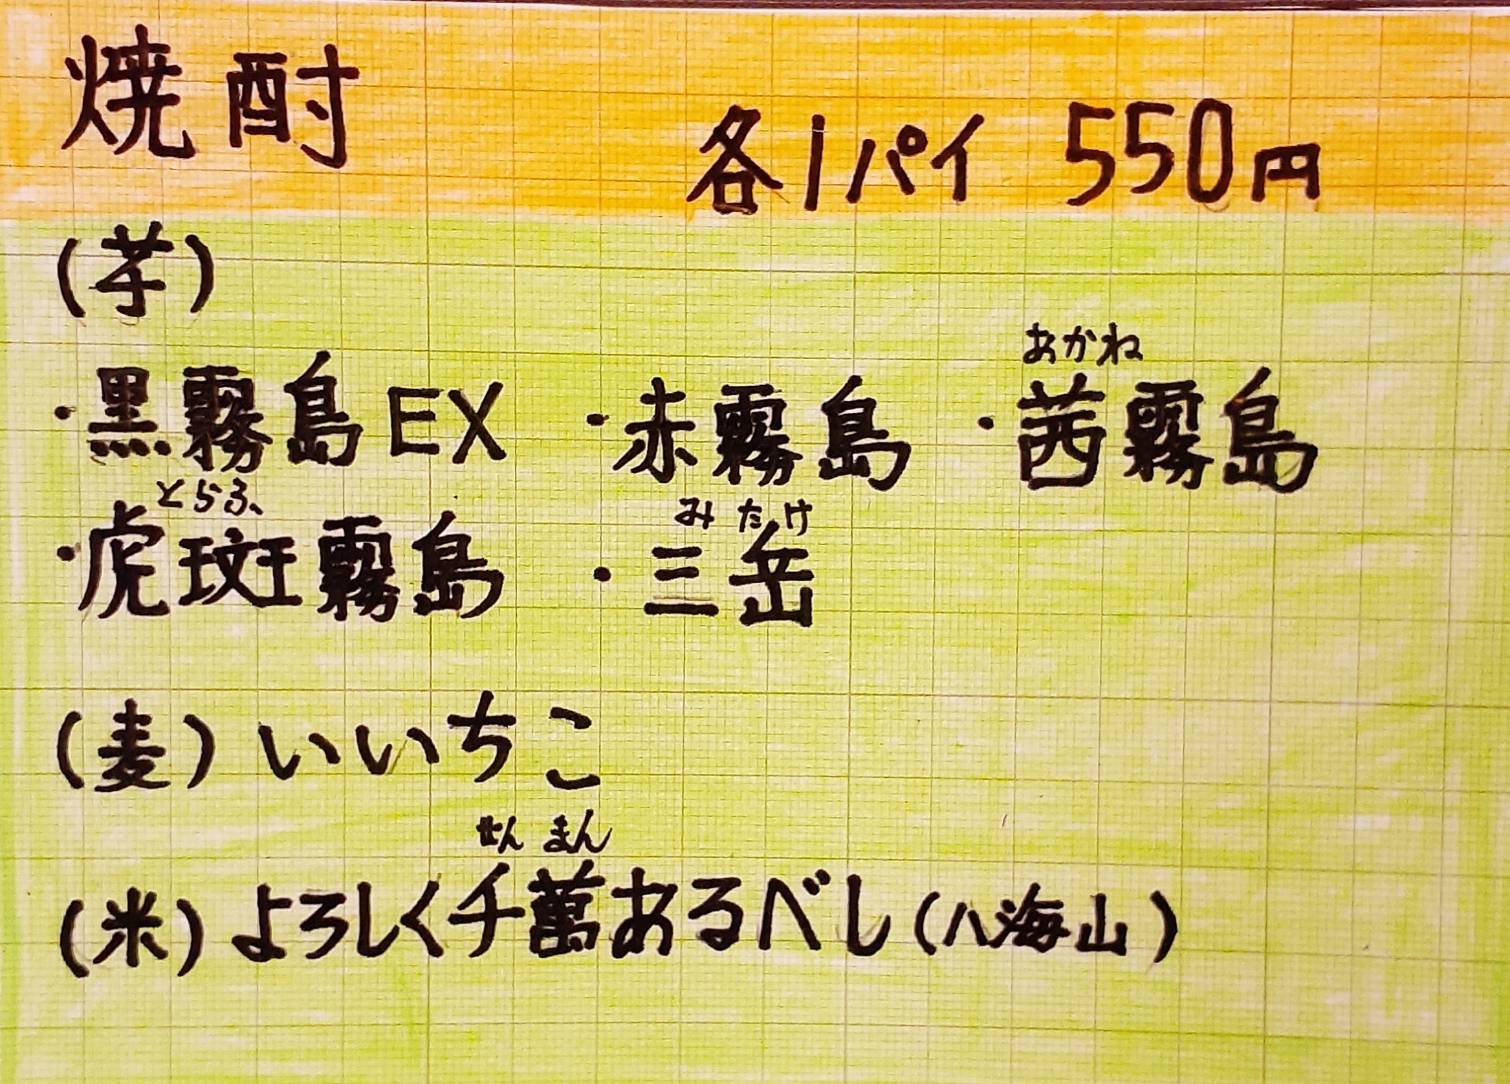 焼酎
各1パイ 550円
(芋)
あかね
・黒霧島EX ・赤霧島 ・茜霧島
とらふ みたけ
・虎斑霧島 ・三岳
(麦) いいちこ
せんまん
(米) よろしく千萬あるべし(八海山)